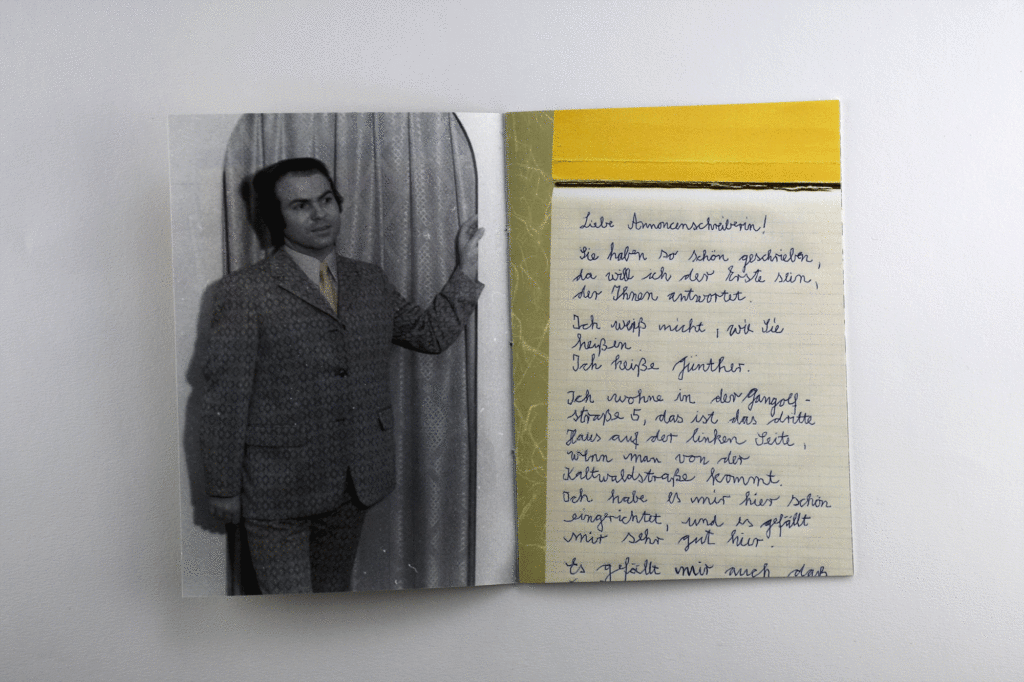 Liebe Annoncenschreiberin!
Sie haben so schön geschrieben,
da will ich der Erste sein,
der Ihnen antwortet.
Ich weiß nicht, wie Sie
heißen.
Ich heiße Günther.
Ich wohne in der Gangolf-
straße 5, das ist das dritte
Haus auf der linken Seite,
wenn man von der
Kaltwaldstraße kommt.
Ich habe es mir hier schön
eingerichtet, und es gefällt
mir sehr gut hier.
Es gefällt mir auch, daß